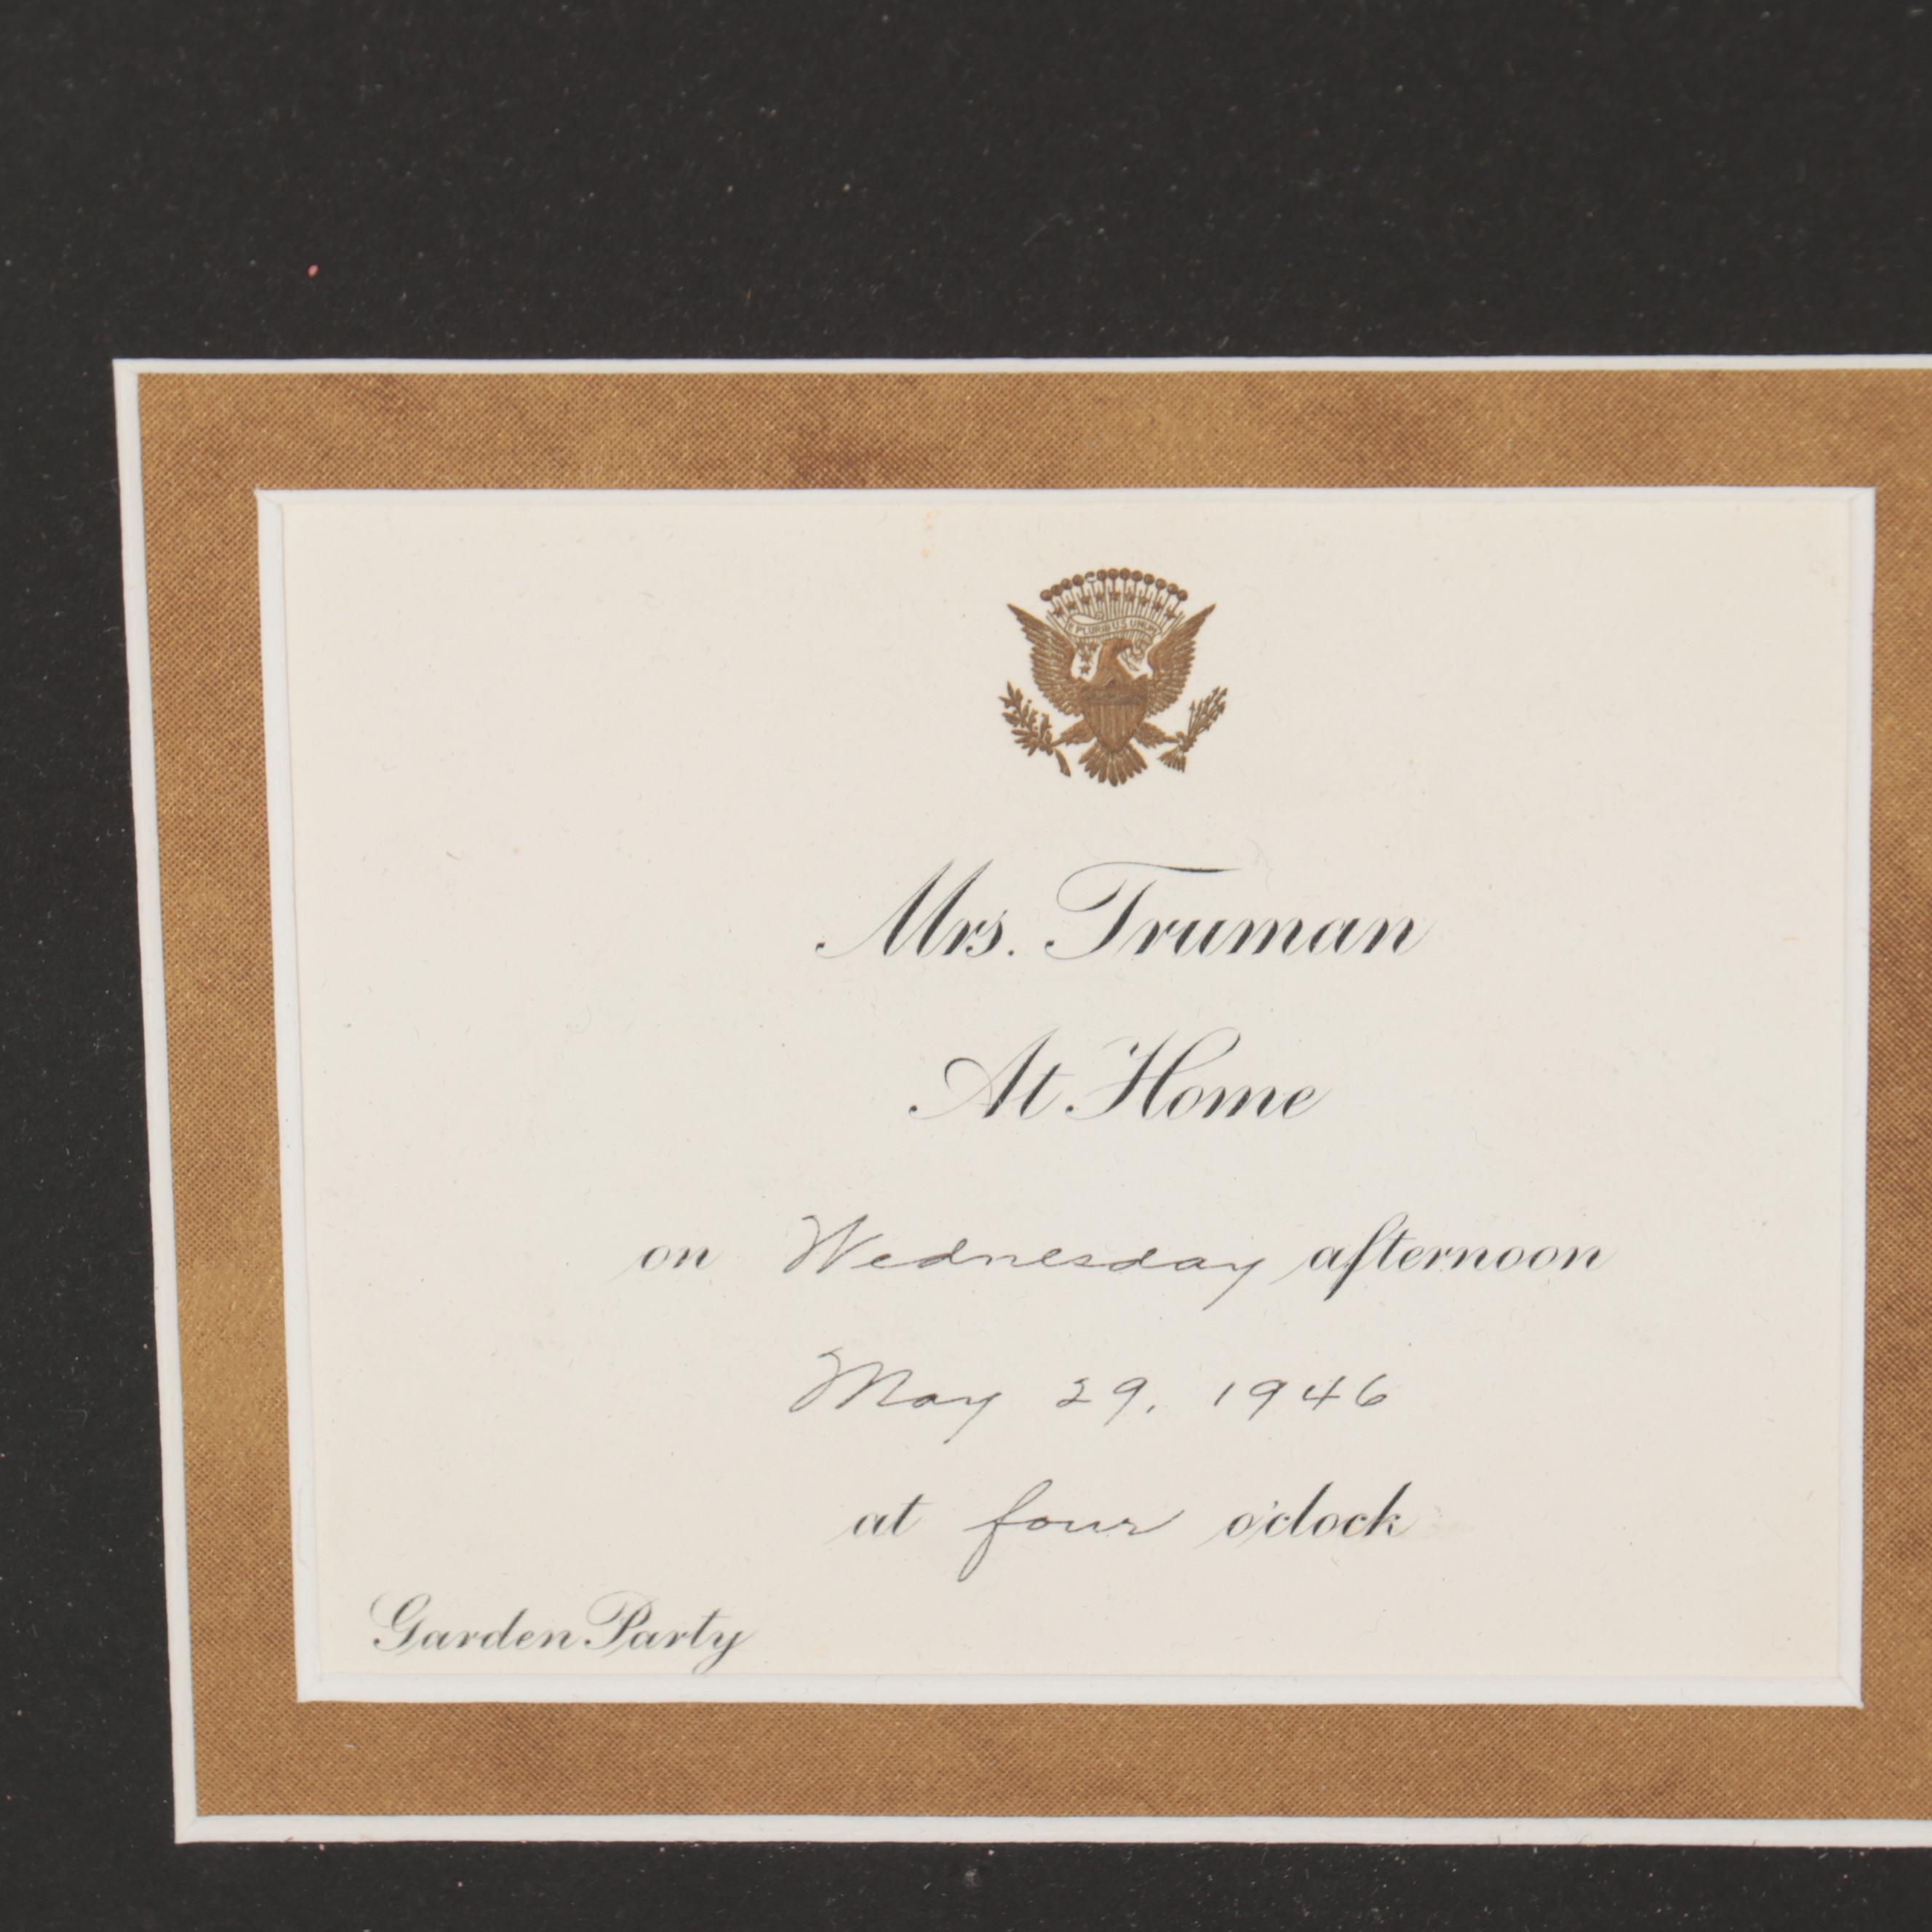 E PLURIBUS UNUM
Mrs. Truman
At Home
on Wednesday afternoon
May 29, 1946
at four o'clock
Garden Party